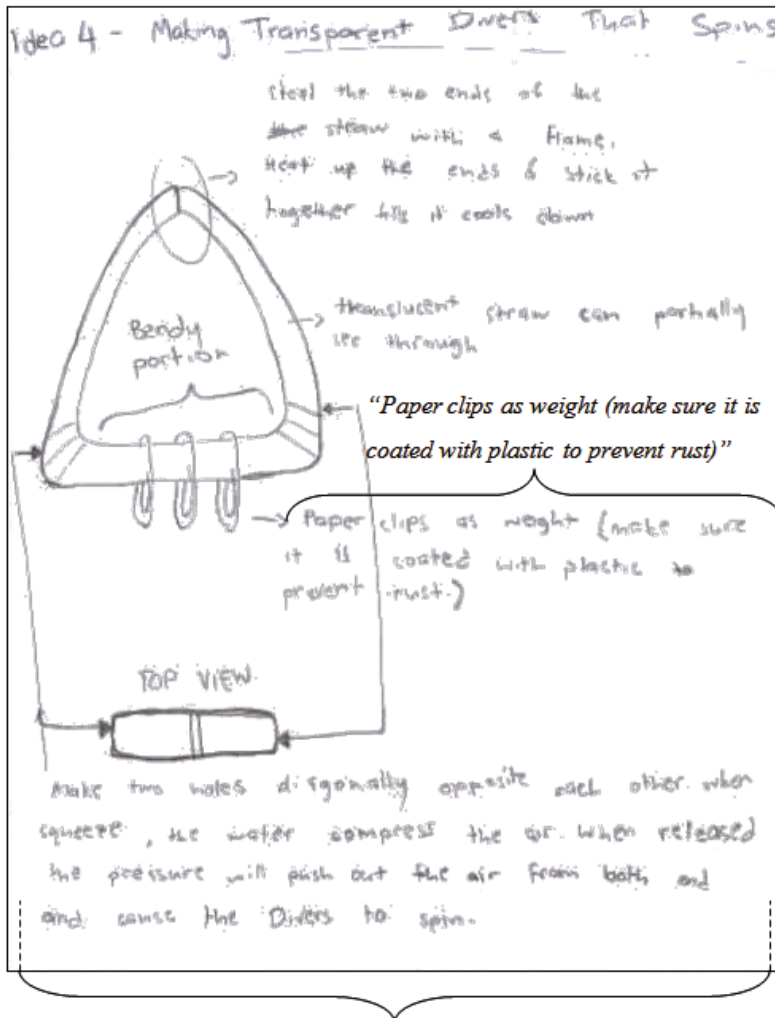 Idea 4 - Making Transparent Divers That Spins
Steal the two ends of the
the straw with a Flame.
Heat up the ends & stick it
together till it cools down
translucent straw can partially
see through
Bendy
portion
“Paper clips as weight (make sure it is
coated with plastic to prevent rust)”
Paper clips as weight (make sure
it is coated with plastic to
prevent rust.)
TOP VIEW
Make two holes diagonally opposite each other. when
squeeze, the water compress the air. When released
the pressure will push out the air from both end
and cause the Divers to spin.